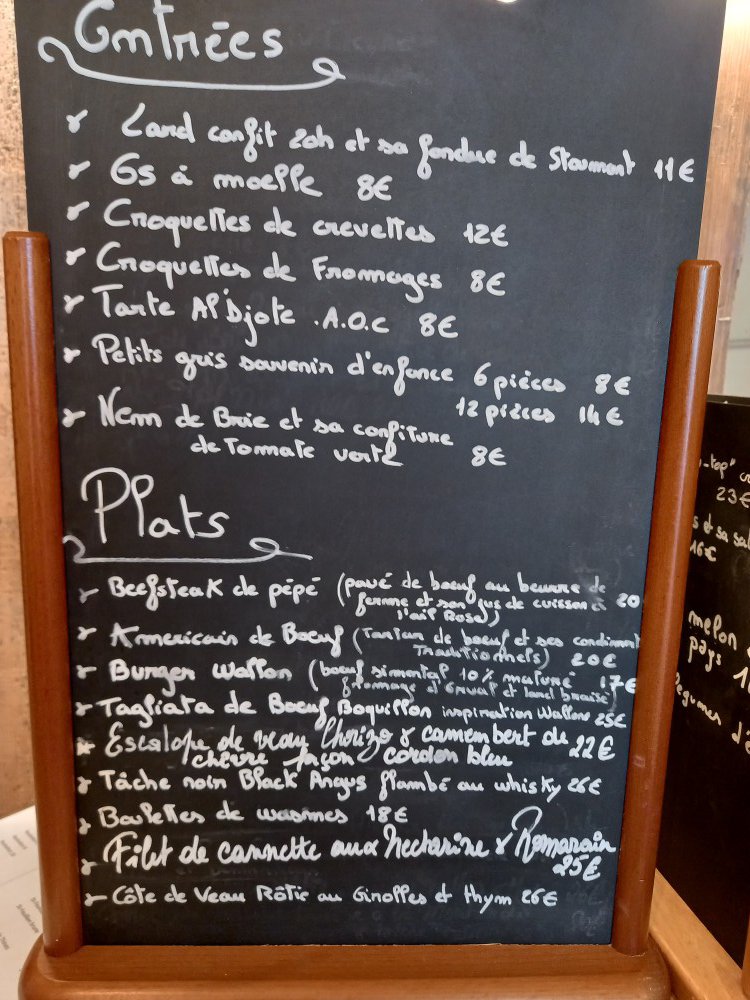 Entrées
Lard confit 20h et sa fondue de Stavmont 11€
Os à moelle 8€
Croquettes de crevettes 12€
Croquettes de Fromages 8€
Tarte Al'Djote .A.O.C 8€
Petits gris souvenir d'enfance 6 pièces 8€
12 pièces 14€
Nem de Brie et sa confiture
de Tomate verte 8€
Plats
Beefsteak de pépé (pavé de boeuf au beurre de
ferme et son jus de cuisson à 20
l'ail Rose)
Américain de Boeuf (Tartare de boeuf et ses condiment
Traditionnels) 20€
Burger Wallon (boeuf simental 10% maturé 17€
fromage d'Orval et lard braisé)
Tagliata de Boeuf Boquillon inspiration Wallone 25€
Escalope de veau Chorizo & camembert de 22€
chèvre façon cordon bleu
Tâche noir Black Angus flambé au whisky 26€
Boulettes de wasmes 18€
Filet de cannette aux Nectarine & Romarain
25€
Côte de Veau Rôtie au Girolles et thym 26€
-top"
23€
s et sa sal
16€
melon
pays 1
légumes d'é